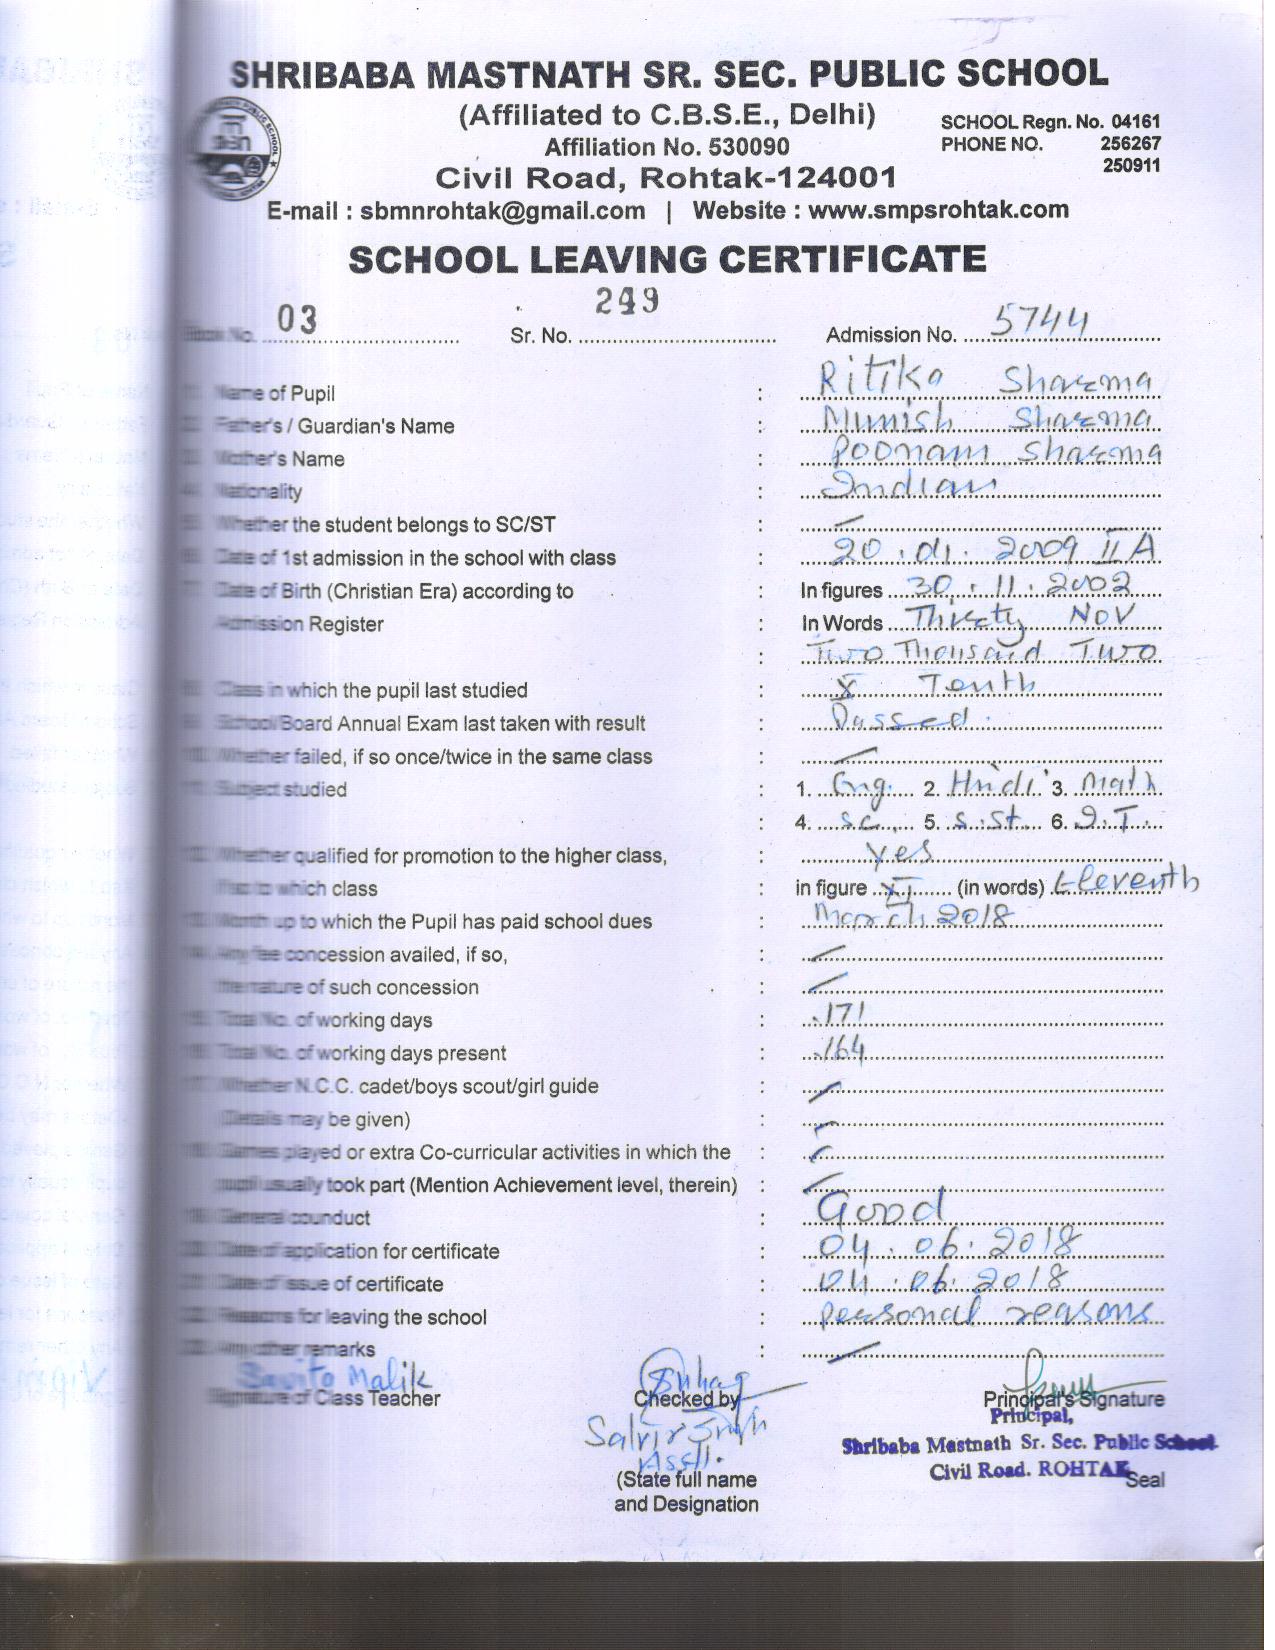 SHRIBABA MASTNATH SR. SEC. PUBLIC SCHOOL
(Affiliated to C.B.S.E., Delhi)
Affiliation No. 530090
SCHOOL Regn. No. 04161
PHONE NO. 256267
250911
Civil Road, Rohtak-124001
E-mail : sbmnrohtak@gmail.com | Website : www.smpsrohtak.com
SCHOOL LEAVING CERTIFICATE
Book No. 03 Sr. No. 249 Admission No. 5744
1. Name of Pupil : Ritika Sharma
2. Father's / Guardian's Name : Munish Sharma
3. Mother's Name : Poonam Sharma
4. Nationality : Indian
5. Whether the student belongs to SC/ST :
6. Date of 1st admission in the school with class : 20.01.2009 II A
7. Date of Birth (Christian Era) according to : In figures 30.11.2002
Admission Register : In Words Thirty Nov
: Two Thousand Two
8. Class in which the pupil last studied : X Tenth
9. School/Board Annual Exam last taken with result : Passed
10. Whether failed, if so once/twice in the same class :
11. Subject studied : 1. Eng. 2. Hindi 3. Math
: 4. Sc. 5. S.St. 6. I.T.
12. Whether qualified for promotion to the higher class, : Yes
if so to which class : in figure XI (in words) Eleventh
13. Month up to which the Pupil has paid school dues : March 2018
14. Any fee concession availed, if so, :
the nature of such concession :
15. Total No. of working days : 171
16. Total No. of working days present : 164
17. Whether N.C.C. cadet/boys scout/girl guide :
(Details may be given) :
18. Games played or extra Co-curricular activities in which the :
pupil usually took part (Mention Achievement level, therein) :
19. General counduct : Good
20. Date of application for certificate : 04.06.2018
21. Date of issue of certificate : 04.06.2018
22. Reasons for leaving the school : personal reasons
23. Any other remarks :
Malik
Signature of Class Teacher Checked by Principal's Signature
Singh
Asstt.
(State full name
and Designation
Principal,
Shribaba Mastnath Sr. Sec. Public School
Civil Road. ROHTAK
Seal